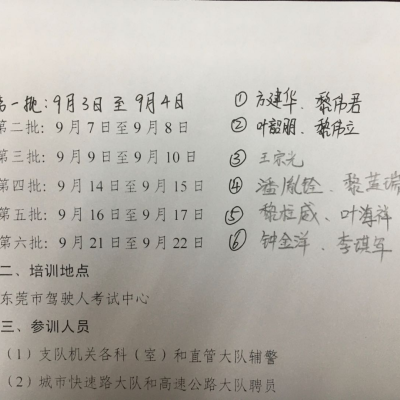 第一批: 9月3日至9月4日 ①方建华、黎伟君
第二批: 9月7日至9月8日 ②叶韶明、黎伟立
第三批: 9月9日至9月10日 ③王宗光
第四批: 9月14日至9月15日 ④潘胤铨、黎益瑞
第五批: 9月16日至9月17日 ⑤黎恒威、叶海祥
第六批: 9月21日至9月22日 ⑥钟金洋、李琪军
二、培训地点
东莞市驾驶人考试中心
三、参训人员
（1）支队机关各科（室）和直管大队辅警
（2）城市快速路大队和高速公路大队聘员